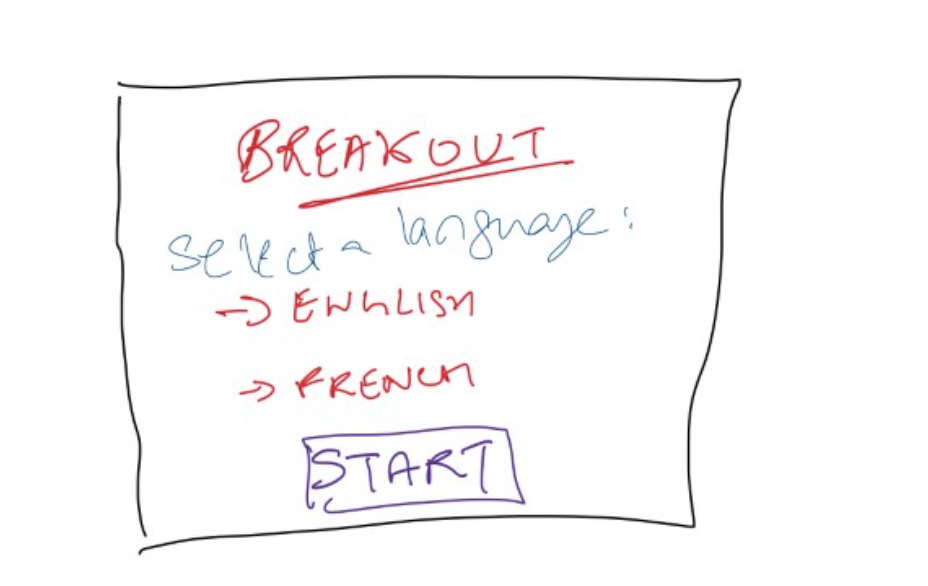 BREAKOUT
Select a language:
→ ENGLISH
→ FRENCH
START